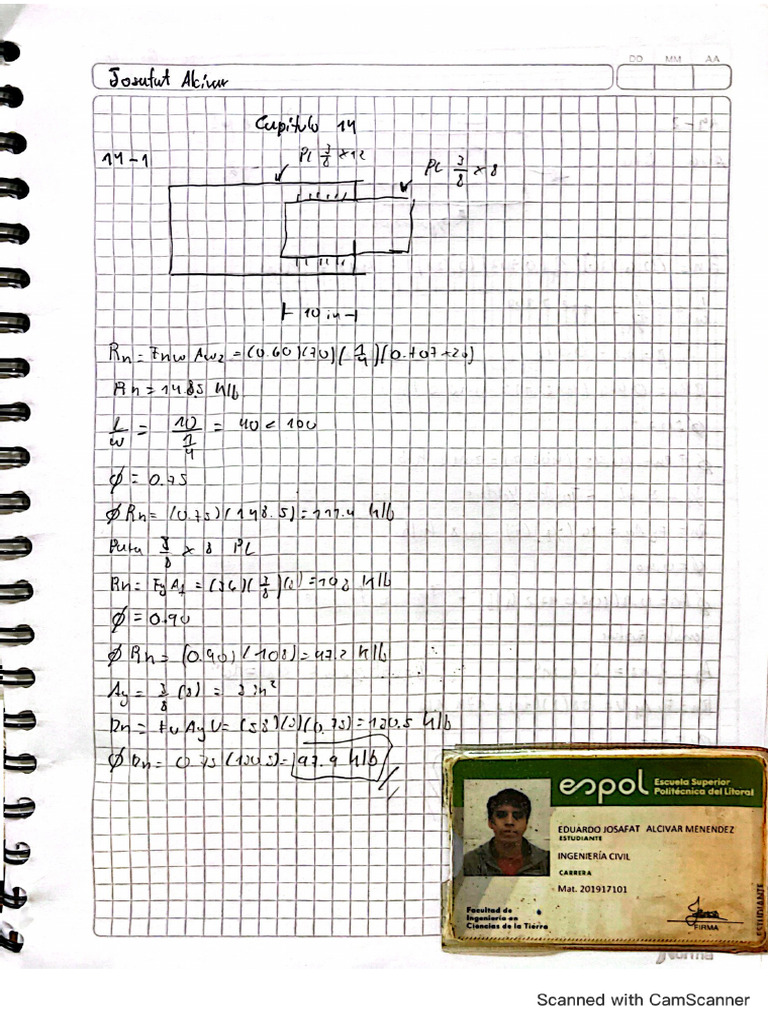 DD MM AA
Josafat Alcivar
Capitulo 14
14-1
PL 3/8 x 12
PL 3/8 x 8
10 in
Rn = Fnw Aw2 = (0.60)(70)(1/4)(0.707 x 20)
Rn = 14.85 klb
L/w = 10/(1/4) = 40 < 100
φ = 0.75
φ Rn = (0.75)(148.5) = 111.4 klb
Para 3/8 x 8 PL
Rn = Fy Ag = (36)(3/8)(8) = 108 klb
φ = 0.90
φ Rn = (0.90)(108) = 97.2 klb
Ag = 3/8 (8) = 3 in²
Rn = Fu Ag U = (58)(3)(0.75) = 130.5 klb
φ Rn = 0.75 (130.5) = 97.9 klb
espol Escuela Superior
Politécnica del Litoral
EDUARDO JOSAFAT ALCIVAR MENENDEZ
ESTUDIANTE
INGENIERÍA CIVIL
CARRERA
Mat. 201917101
Facultad de
Ingeniería en
Ciencias de la Tierra
FIRMA
ESTUDIANTE
Norma
Scanned with CamScanner